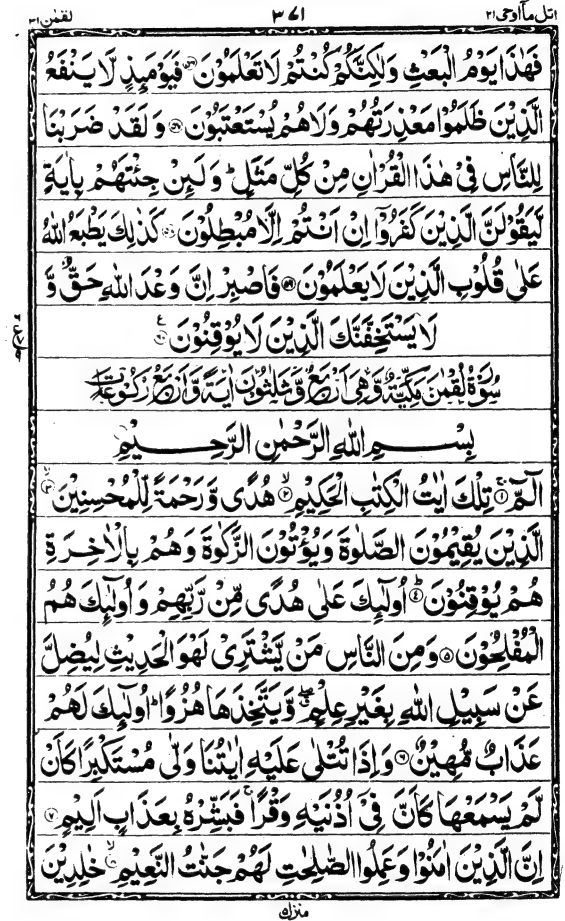 اتل ماۤ اوحی ۲۱ ۳۷۱ لقمٰن ۳۱
فَهٰذَا يَوْمُ الْبَعْثِ وَلٰكِنَّكُمْ كُنْتُمْ لَا تَعْلَمُوْنَ ﴿۵۶﴾ فَيَوْمَئِذٍ لَّا يَنْفَعُ
الَّذِيْنَ ظَلَمُوْا مَعْذِرَتُهُمْ وَلَا هُمْ يُسْتَعْتَبُوْنَ ﴿۵۷﴾ وَلَقَدْ ضَرَبْنَا
لِلنَّاسِ فِيْ هٰذَا الْقُرْاٰنِ مِنْ كُلِّ مَثَلٍ ؕ وَلَئِنْ جِئْتَهُمْ بِاٰيَةٍ
لَّيَقُوْلَنَّ الَّذِيْنَ كَفَرُوْۤا اِنْ اَنْتُمْ اِلَّا مُبْطِلُوْنَ ﴿۵۸﴾ كَذٰلِكَ يَطْبَعُ اللّٰهُ
عَلٰى قُلُوْبِ الَّذِيْنَ لَا يَعْلَمُوْنَ ﴿۵۹﴾ فَاصْبِرْ اِنَّ وَعْدَ اللّٰهِ حَقٌّ وَّ
لَا يَسْتَخِفَّنَّكَ الَّذِيْنَ لَا يُوْقِنُوْنَ ﴿۶۰﴾ ع
سُوْرَةُ لُقْمٰنَ مَكِّيَّةٌ وَّهِىَ اَرْبَعٌ وَّثَلٰثُوْنَ اٰيَةً وَّاَرْبَعُ رُكُوْعَاتٍ
بِسْمِ اللّٰهِ الرَّحْمٰنِ الرَّحِيْمِ
الٓمّٓ ﴿۱﴾ تِلْكَ اٰيٰتُ الْكِتٰبِ الْحَكِيْمِ ﴿۲﴾ هُدًى وَّرَحْمَةً لِّلْمُحْسِنِيْنَ ﴿۳﴾
الَّذِيْنَ يُقِيْمُوْنَ الصَّلٰوةَ وَيُؤْتُوْنَ الزَّكٰوةَ وَهُمْ بِالْاٰخِرَةِ
هُمْ يُوْقِنُوْنَ ﴿۴﴾ اُولٰٓئِكَ عَلٰى هُدًى مِّنْ رَّبِّهِمْ وَاُولٰٓئِكَ هُمُ
الْمُفْلِحُوْنَ ﴿۵﴾ وَمِنَ النَّاسِ مَنْ يَّشْتَرِيْ لَهْوَ الْحَدِيْثِ لِيُضِلَّ
عَنْ سَبِيْلِ اللّٰهِ بِغَيْرِ عِلْمٍ وَّيَتَّخِذَهَا هُزُوًا ؕ اُولٰٓئِكَ لَهُمْ
عَذَابٌ مُّهِيْنٌ ﴿۶﴾ وَاِذَا تُتْلٰى عَلَيْهِ اٰيٰتُنَا وَلّٰى مُسْتَكْبِرًا كَاَنْ
لَّمْ يَسْمَعْهَا كَاَنَّ فِيْۤ اُذُنَيْهِ وَقْرًا ۚ فَبَشِّرْهُ بِعَذَابٍ اَلِيْمٍ ﴿۷﴾
اِنَّ الَّذِيْنَ اٰمَنُوْا وَعَمِلُوا الصّٰلِحٰتِ لَهُمْ جَنّٰتُ النَّعِيْمِ ﴿۸﴾ خٰلِدِيْنَ